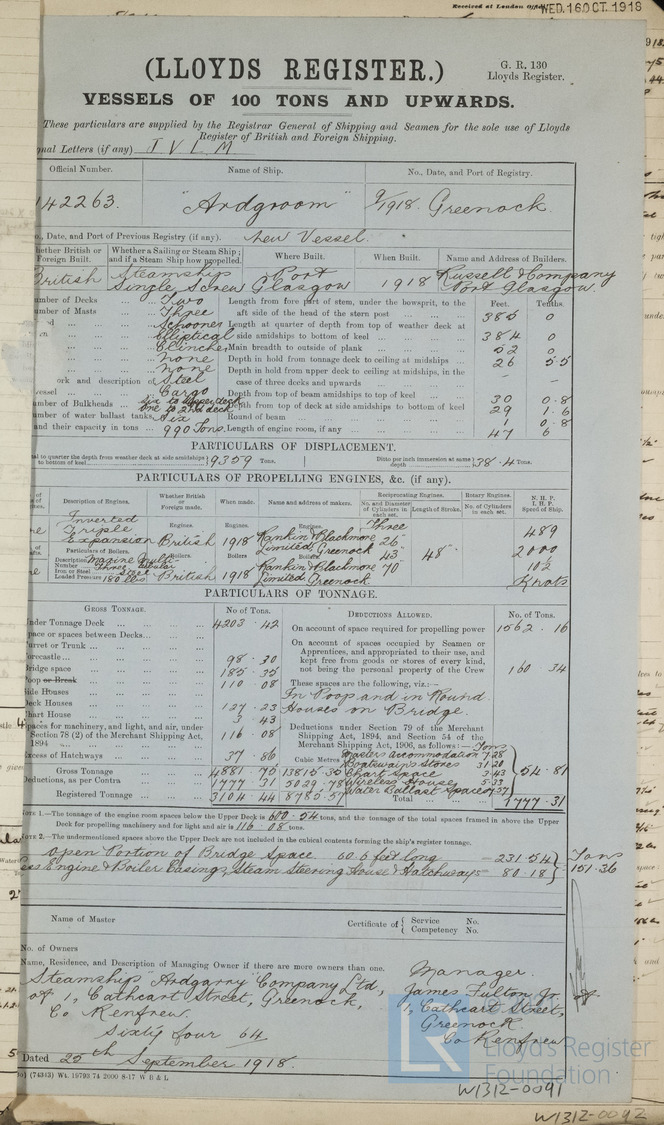 Received at London Office WED. 16 OCT. 1918
(LLOYDS REGISTER.)
G. R. 130
Lloyds Register.
VESSELS OF 100 TONS AND UPWARDS.
These particulars are supplied by the Registrar General of Shipping and Seamen for the sole use of Lloyds
Register of British and Foreign Shipping.
gnal Letters (if any) J V L M
Official Number. Name of Ship. No., Date, and Port of Registry.
142263. "Ardgroom" 9/1918. Greenock.
o., Date, and Port of Previous Registry (if any). New Vessel.
hether British or Foreign Built. Whether a Sailing or Steam Ship; and if a Steam Ship how propelled. Where Built. When Built. Name and Address of Builders.
British Steamship Single Screw Port Glasgow 1918 Russell & Company Port Glasgow.
umber of Decks Two
umber of Masts Three
Schooner
Elliptical
Clincher
None
None
ork and description of Steel
vessel Cargo
umber of Bulkheads six to upper deck one to 2nd deck
umber of water ballast tanks, Six
and their capacity in tons 990 Tons.
Feet. Tenths.
Length from fore part of stem, under the bowsprit, to the
aft side of the head of the stern post 385 0
Length at quarter of depth from top of weather deck at
side amidships to bottom of keel 384 0
Main breadth to outside of plank 52 0
Depth in hold from tonnage deck to ceiling at midships 26 5.5
Depth in hold from upper deck to ceiling at midships, in the
case of three decks and upwards – –
Depth from top of beam amidships to top of keel 30 0.8
Depth from top of deck at side amidships to bottom of keel 29 1.6
Round of beam 1 0.8
Length of engine room, if any 47 6
PARTICULARS OF DISPLACEMENT.
al to quarter the depth from weather deck at side amidships to bottom of keel 9359 Tons. Ditto per inch immersion at same depth 38.4 Tons.
PARTICULARS OF PROPELLING ENGINES, &c. (if any).
Description of Engines. Whether British or Foreign made. When made. Name and address of makers. Reciprocating Engines. Rotary Engines. N. H. P. I. H. P. Speed of Ship.
No. and Diameter of Cylinders in each set. Length of Stroke. No. of Cylinders in each set.
Inverted Triple Expansion Engines. British Engines. 1918 Engines. Rankin & Blackmore Limited Greenock Three 26" 43" 70" 48" 489 2000 10½ Knots
Particulars of Boilers.
Description Marine Multi-tubular
Number Three
Iron or Steel Steel
Loaded Pressure 180 lbs
Boilers. British Boilers 1918 Boilers Rankin & Blackmore Limited Greenock
PARTICULARS OF TONNAGE.
GROSS TONNAGE. No of Tons. DEDUCTIONS ALLOWED. No. of Tons.
Under Tonnage Deck 4203.42
pace or spaces between Decks
urret or Trunk
orecastle 98.30
Bridge space 185.35
Poop or Break 110.08
ide Houses
Deck Houses 127.23
hart House 3.43
paces for machinery, and light, and air, under
Section 78 (2) of the Merchant Shipping Act,
1894 116.08
Excess of Hatchways 37.86
Cubic Metres
Gross Tonnage 4881.75 13815.35
Deductions, as per Contra 1777.31 5029.78
Registered Tonnage 3104.44 8785.57
On account of space required for propelling power 1562.16
On account of spaces occupied by Seamen or
Apprentices, and appropriated to their use, and
kept free from goods or stores of every kind,
not being the personal property of the Crew 160.34
These spaces are the following, viz.:—
In Poop and in Round
Houses on Bridge.
Deductions under Section 79 of the Merchant
Shipping Act, 1894, and Section 54 of the
Merchant Shipping Act, 1906, as follows:— Tons
Masters accommodation 7.28
Boatswain's Stores 31.20
Chart Space 3.43
Wireless House 5.33
Water Ballast Space 7.57
54.81
Total 1777.31
NOTE 1.—The tonnage of the engine room spaces below the Upper Deck is 600.54 tons, and the tonnage of the total spaces framed in above the Upper
Deck for propelling machinery and for light and air is 116.08 tons.
NOTE 2.—The undermentioned spaces above the Upper Deck are not included in the cubical contents forming the ship's register tonnage.
Open Portion of Bridge Space 60.6 feet long = 231.54
ess Engine & Boiler Casing, Steam Steering House & Hatchways = 80.18
Tons
151.36
Name of Master Certificate of { Service No. Competency No.
No. of Owners
Name, Residence, and Description of Managing Owner if there are more owners than one.
Steamship "Ardgarry" Company Ltd,
of 1, Cathcart Street, Greenock,
Co Renfrew.
Sixty four 64
Manager.
James Fulton Jr.
1, Cathcart Street,
Greenock
Co Renfrew
Dated 25th September 1918.
(74343) Wt. 18793/74 2000 8-17 W B & L
LR
Lloyd's Register
Foundation
W1312-0091
W1312-0092